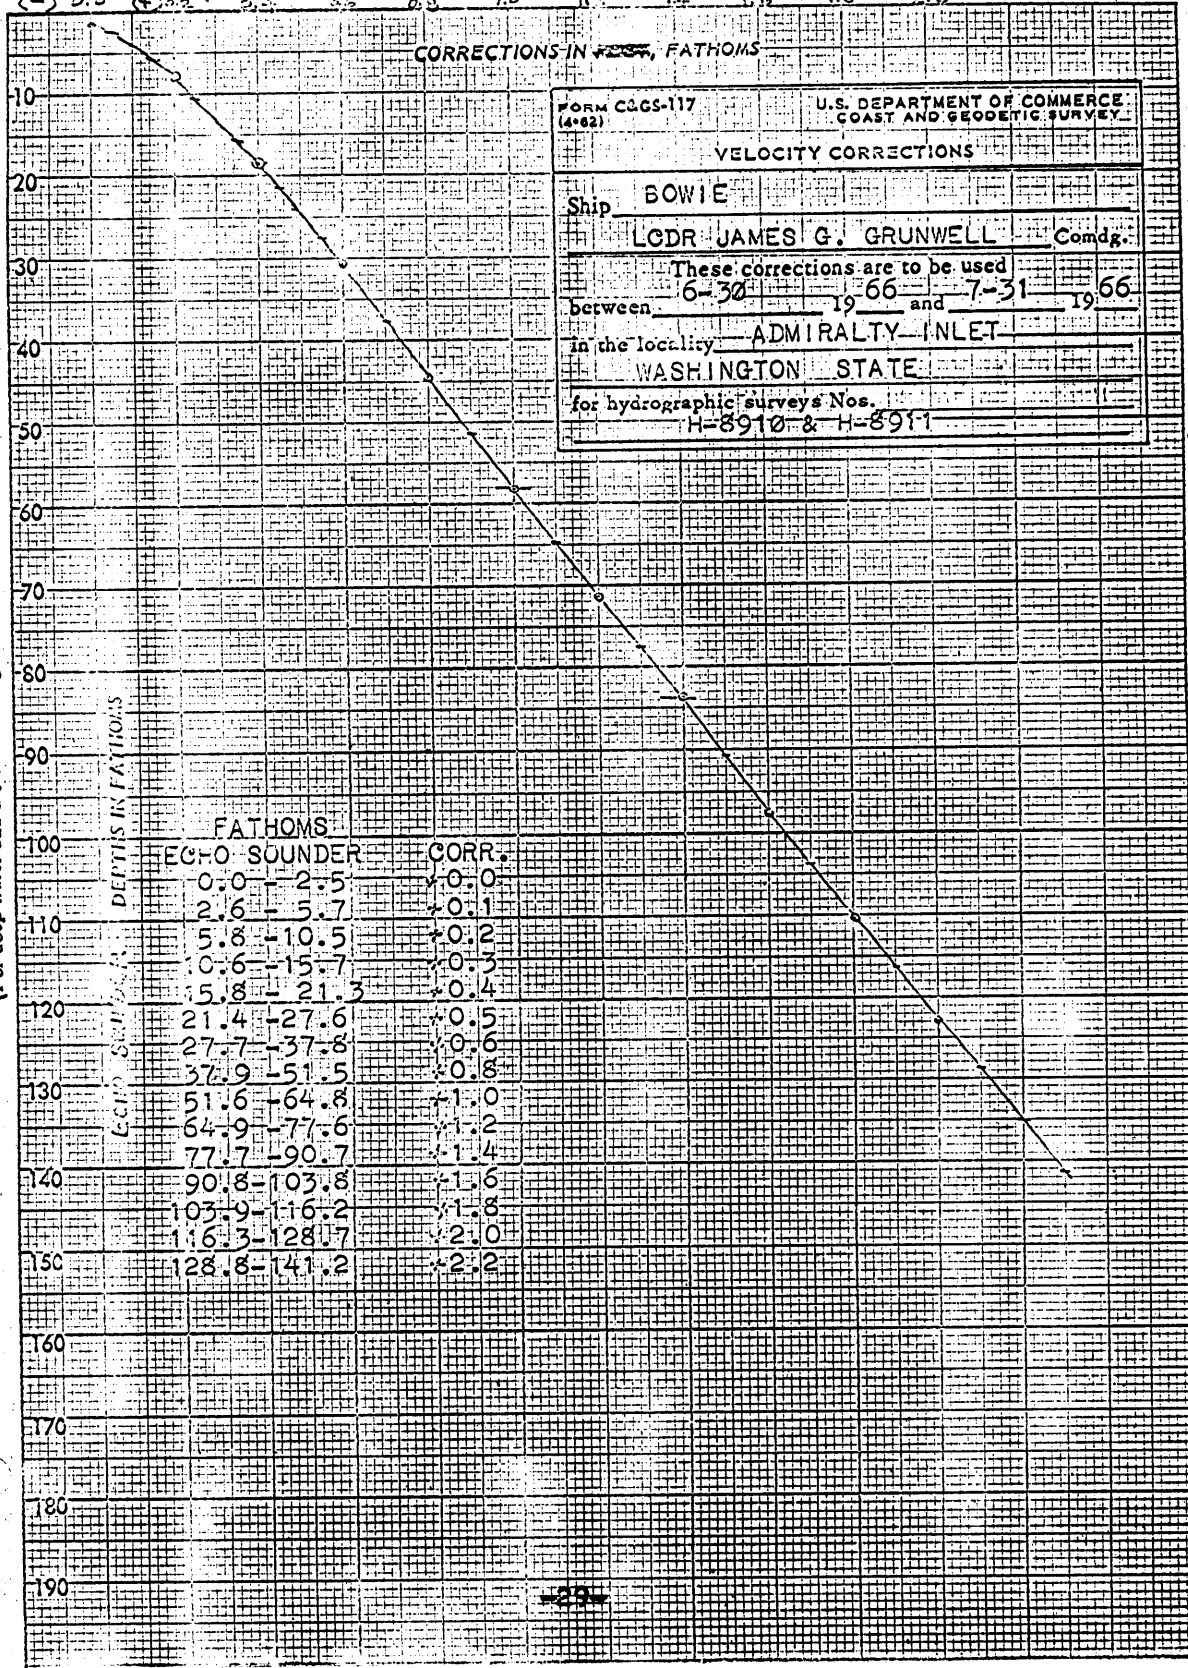 CORRECTIONS IN FEET, FATHOMS
FORM C&GS-117
(4-62)
U.S. DEPARTMENT OF COMMERCE
COAST AND GEODETIC SURVEY
VELOCITY CORRECTIONS
Ship BOWIE
LCDR JAMES G. GRUNWELL Comdg.
These corrections are to be used
between 6-30 19 66 and 7-31 19 66
in the locality ADMIRALTY INLET
WASHINGTON STATE
for hydrographic surveys Nos.
H-8910 & H-8911
10
20
30
40
50
60
70
80
90
100
110
120
130
140
150
160
170
180
190
DEPTHS IN FATHOMS
FATHOMS
ECHO SOUNDER CORR.
0.0 - 2.5 +0.0
2.6 - 5.7 +0.1
5.8 -10.5 +0.2
10.6 -15.7 +0.3
15.8 - 21.3 +0.4
21.4 -27.6 +0.5
27.7 -37.8 +0.6
37.9 -51.5 +0.8
51.6 -64.8 +1.0
64.9 -77.6 +1.2
77.7 -90.7 +1.4
90.8-103.8 +1.6
103.9-116.2 +1.8
116.3-128.7 +2.0
128.8-141.2 +2.2
-29-